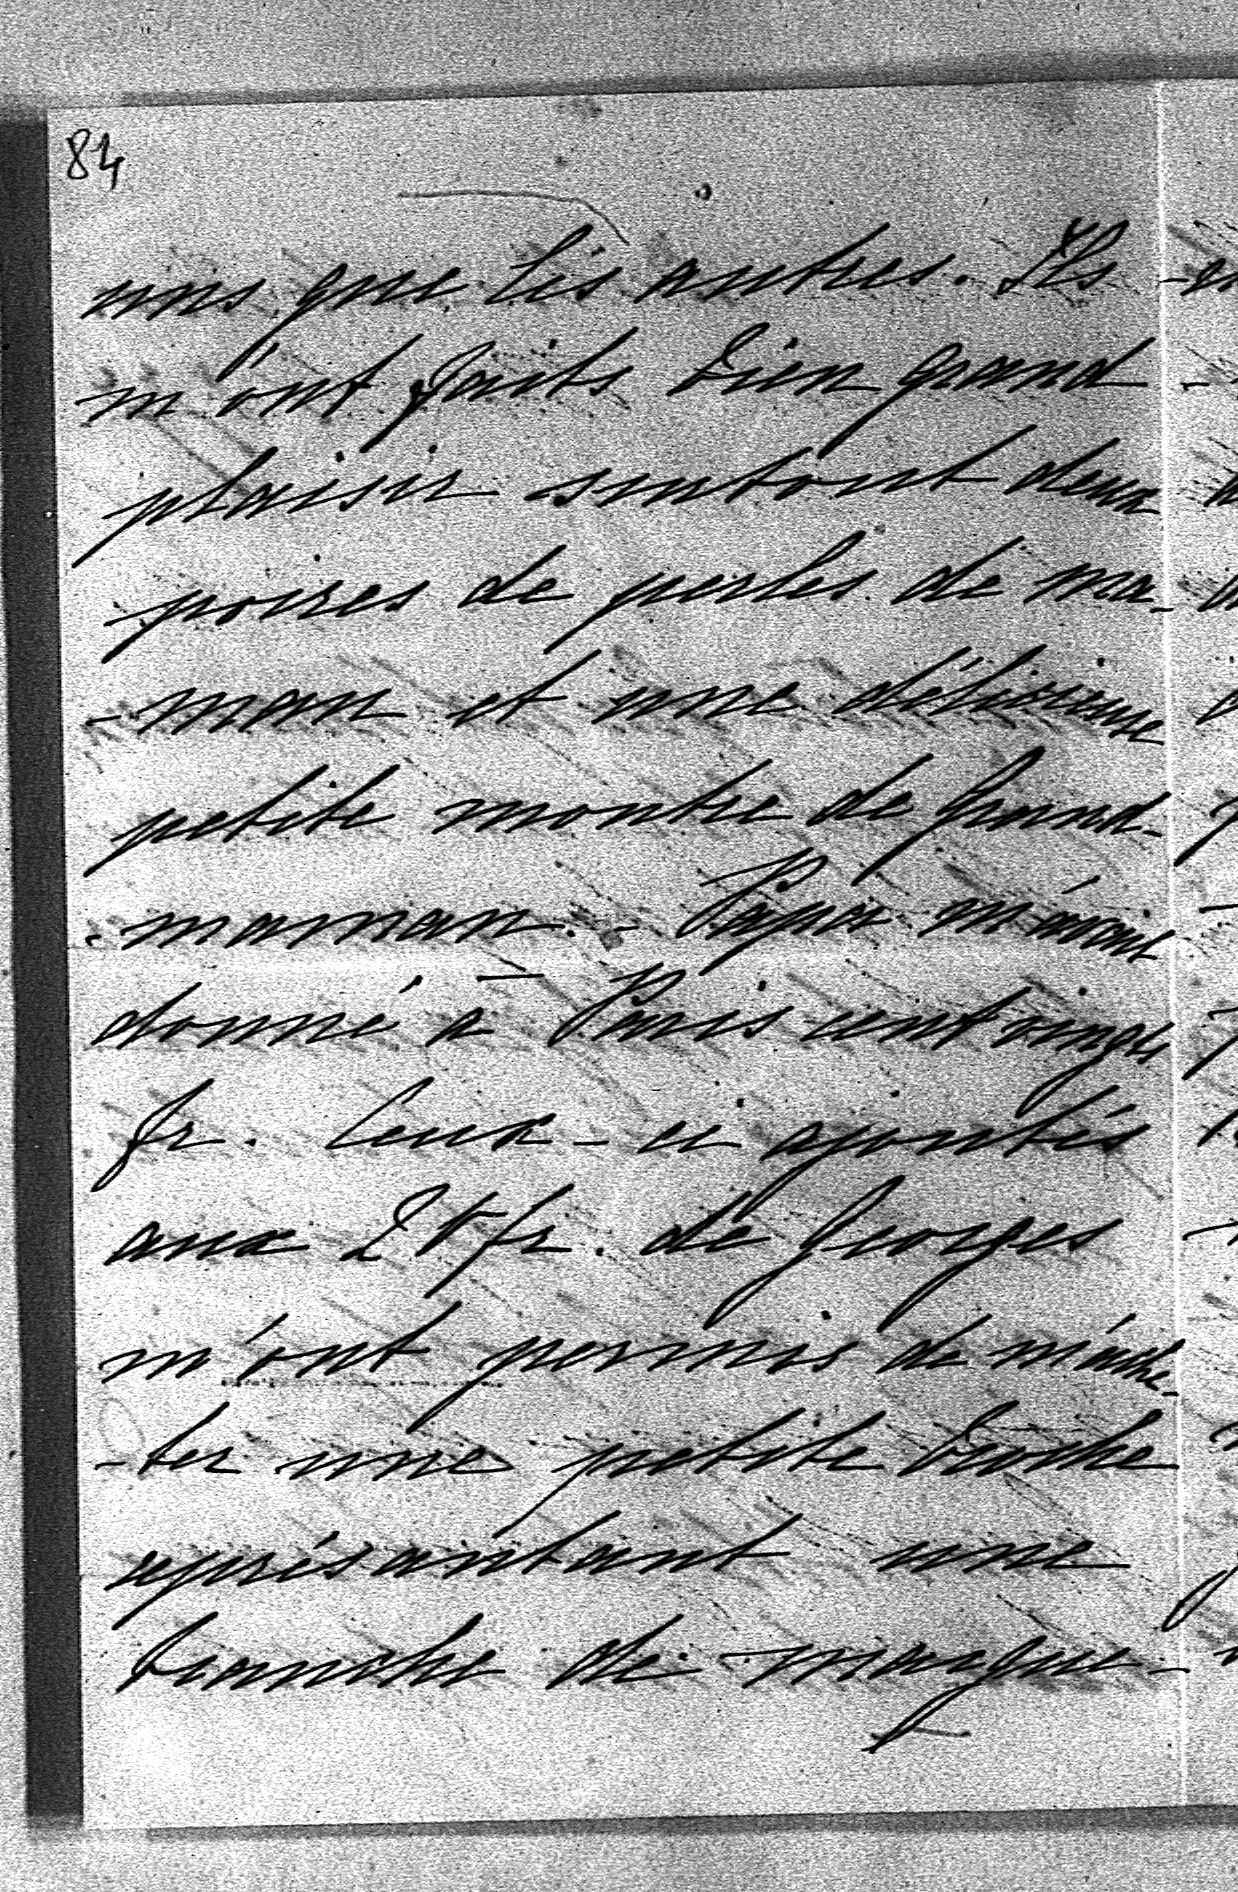 84
uns que les autres. Ils
m'ont faits bien grand
plaisir surtout deux
poires de perles de ma-
-man et une délicieuse
petite montre de Grand-
-maman. - Papa m'avait
donné à Paris cent vingt
fr. Ceux-ci ajoutés
aux fr. de Georges
m'ont permis de m'ache-
-ter une petite broche
représantant une
branche de margue-